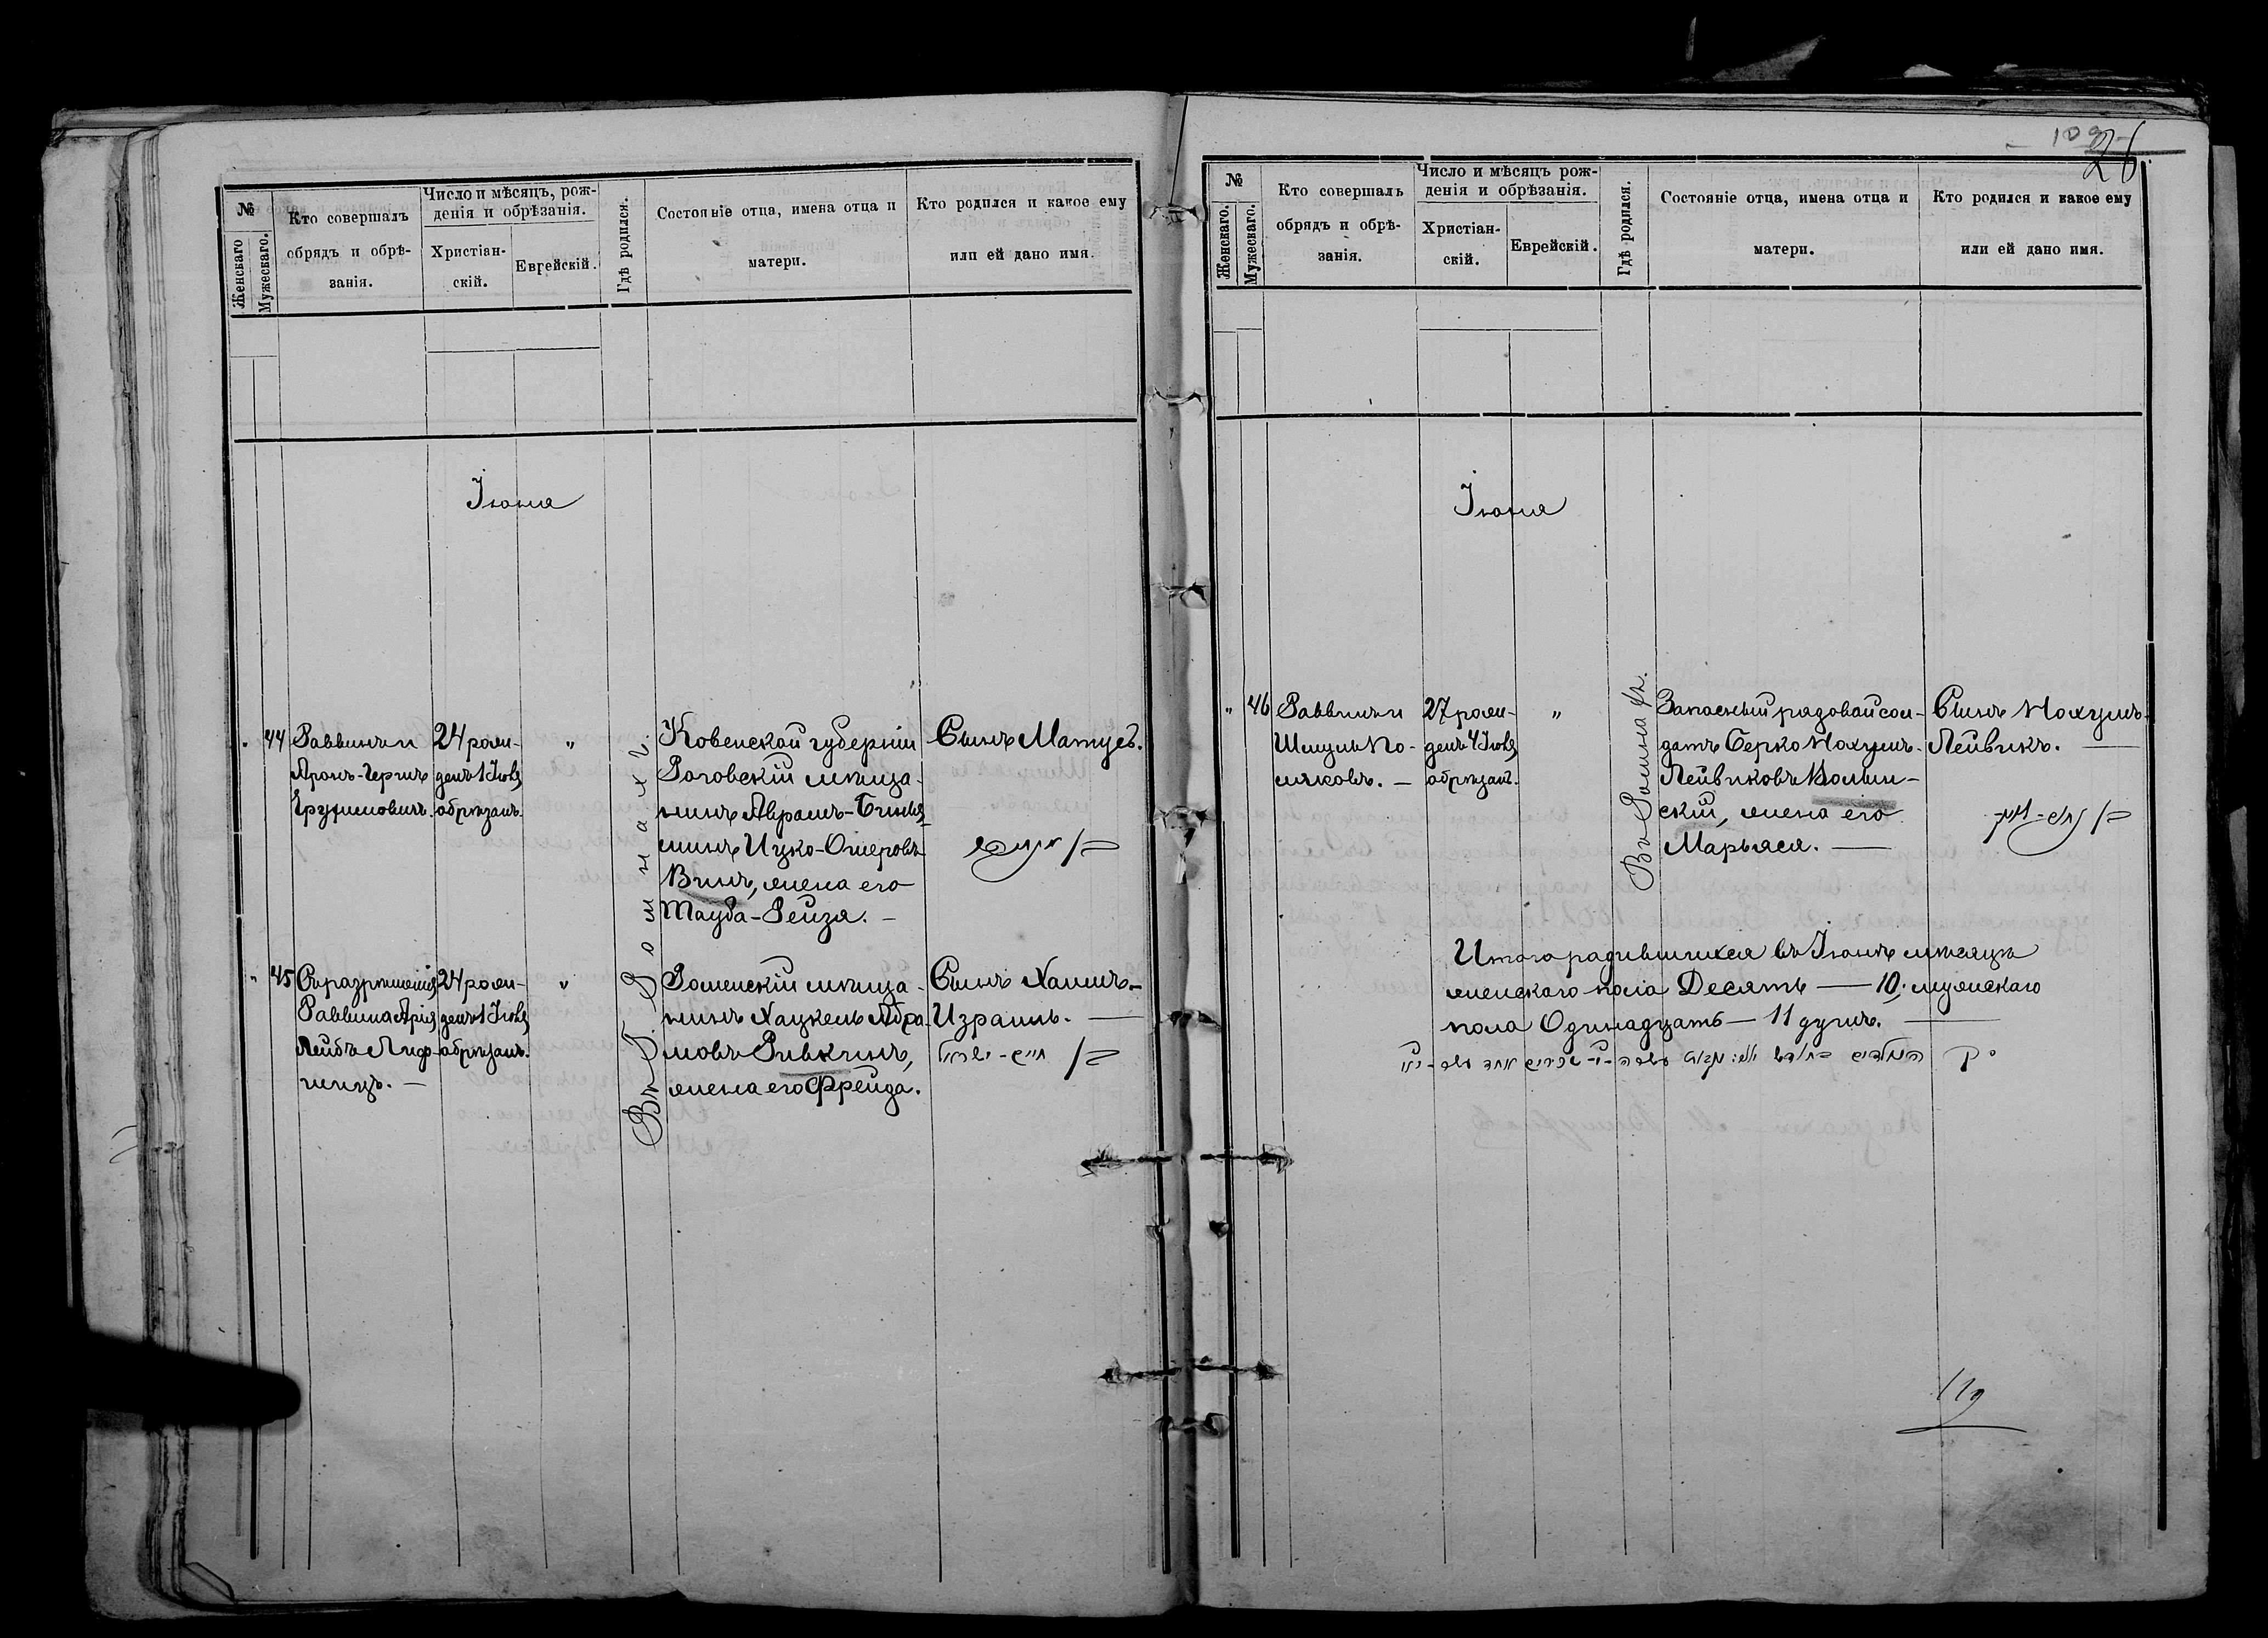 №
Женскаго
Мужескаго.
Кто совершалъ
обрядъ и обрѣ-
занія.
Число и мѣсяцъ, рож-
денія и обрѣзанія.
Христіан-
скій.
Еврейскій.
Гдѣ родился.
Состояніе отца, имена отца и
матери.
Кто родился и какое ему
или ей дано имя.
Іюня
44
Раввинъ и
Аронъ-Герцъ
24 рож-
денъ 1 Іюля
обрѣзанъ.
"
Въ Г. Ромнахъ.
Ковенской губерніи
Роговскій мѣща-
нинъ Абрамъ-Бинья-
минъ Ицко-Ошеровъ
Винъ, жена его
Тауба-Рейза. —
Сынъ Матусъ.
45
Съ разрѣшенія
Раввина Арія
Лейбъ Лиф-
шицъ. —
24 рож-
денъ 1 Іюля
обрѣзанъ.
"
Роменскій мѣща-
нинъ Хацкель Абра-
мовъ Ривкинъ,
жена его Фрейда.
Сынъ Хаимъ-
Израиль. —
חיים - ישראל
109
26
№
Женскаго.
Мужескаго.
Кто совершалъ
обрядъ и обрѣ-
занія.
Число и мѣсяцъ рож-
денія и обрѣзанія.
Христіан-
скій.
Еврейскій.
Гдѣ родился.
Состояніе отца, имена отца и
матери.
Кто родился и какое ему
или ей дано имя.
Іюня
"
46
Раввинъ и
Шмуль По-
ляковъ. —
27 рож-
денъ 4 Іюля
обрѣзанъ.
"
Запасный рядовой сол-
датъ Берко Нохумъ-
Лейвиковъ
скій, жена его
Марьяся. —
Сынъ Нохумъ-
Лейвикъ. —
Итого родившихся въ Іюнѣ мѣсяцѣ
женскаго пола Десять — 10, мужескаго
пола Одинадцать — 11 душъ. —
119